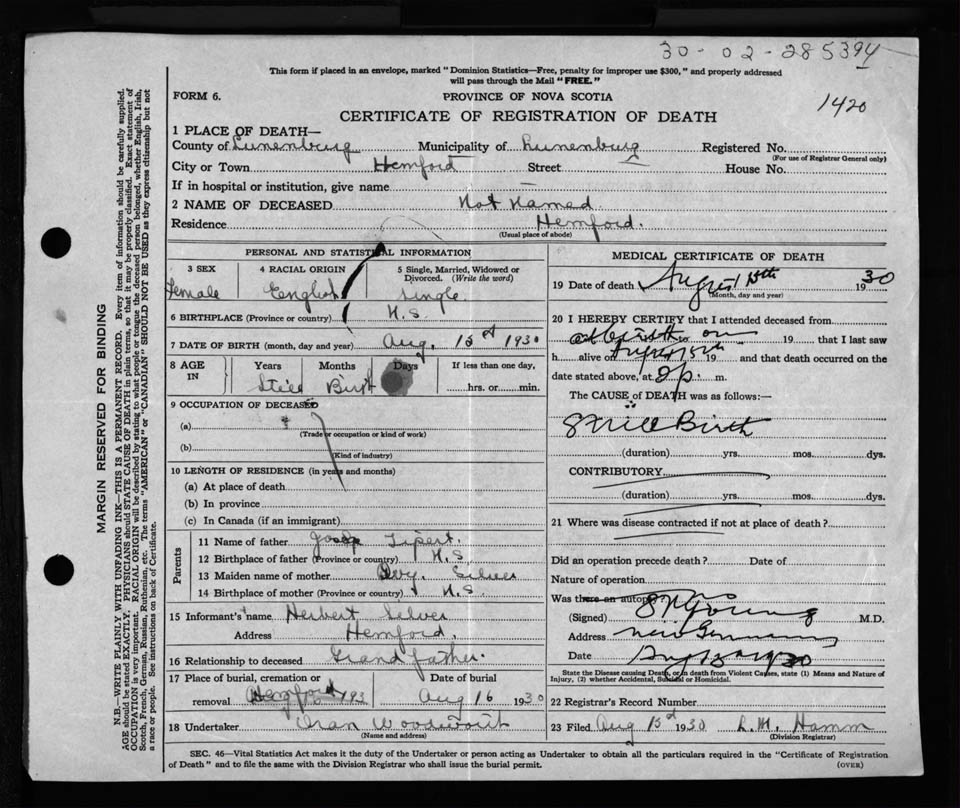 30-02-285394
This form if placed in an envelope, marked "Dominion Statistics—Free, penalty for improper use $300," and properly addressed
will pass through the Mail "FREE."
1420
FORM 6.
PROVINCE OF NOVA SCOTIA
CERTIFICATE OF REGISTRATION OF DEATH
1 PLACE OF DEATH—
County of Lunenburg Municipality of Lunenburg Registered No.
(For use of Registrar General only)
City or Town Hemford Street House No.
If in hospital or institution, give name —
2 NAME OF DECEASED Not Named
Residence Hemford.
(Usual place of abode)
PERSONAL AND STATISTICAL INFORMATION
3 SEX 4 RACIAL ORIGIN 5 Single, Married, Widowed or
Divorced. (Write the word)
Female English single
6 BIRTHPLACE (Province or country) N.S.
7 DATE OF BIRTH (month, day and year) Aug. 1930
8 AGE IN Years Months Days If less than one day,
Still Birth hrs. or min.
9 OCCUPATION OF DECEASED
(a)
(Trade or occupation or kind of work)
(b)
(Kind of industry)
10 LENGTH OF RESIDENCE (in years and months)
(a) At place of death
(b) In province
(c) In Canada (if an immigrant)
Parents
11 Name of father
12 Birthplace of father (Province or country) N.S
13 Maiden name of mother Silver
14 Birthplace of mother (Province or country) N.S.
15 Informant's name Herbert Silver
Address Hemford.
16 Relationship to deceased Grandfather.
17 Place of burial, cremation or Date of burial
removal Hemford 193 Aug 16 1930
18 Undertaker
(Name and address)
MEDICAL CERTIFICATE OF DEATH
19 Date of death August 15th 1930
(Month, day and year)
20 I HEREBY CERTIFY that I attended deceased from
at birth on 19 that I last saw
h alive on August 15th 19 and that death occurred on
date stated above, at p. m.
The CAUSE of DEATH was as follows:
Still Birth
(duration) yrs. mos. dys.
CONTRIBUTORY
(duration) yrs. mos. dys.
21 Where was disease contracted if not at place of death?
Did an operation precede death? Date of
Nature of operation
Was there an autopsy? no
(Signed) M.D.
Address New Germany
Date
State the Disease causing Death, or in death from Violent Causes, state (1) Means and Nature of
Injury, (2) whether Accidental, Suicidal or Homicidal.
22 Registrar's Record Number
23 Filed Aug 1930 R.M. Hamm
(Division Registrar)
SEC. 46—Vital Statistics Act makes it the duty of the Undertaker or person acting as Undertaker to obtain all the particulars required in the "Certificate of Registration
of Death" and to file the same with the Division Registrar who shall issue the burial permit.
(OVER)
MARGIN RESERVED FOR BINDING
N.B.—WRITE PLAINLY WITH UNFADING INK—THIS IS A PERMANENT RECORD. Every item of information should be carefully supplied.
AGE should be stated EXACTLY. PHYSICIANS should STATE CAUSE OF DEATH in plain terms, so that it may be properly classified. Exact statement of
OCCUPATION is very important. RACIAL ORIGIN will be described by stating to what people or tongue the deceased person belonged, whether English, Irish,
Scotch, French, German, Russian, Ruthenian, etc. The terms "AMERICAN" or "CANADIAN" SHOULD NOT BE USED as they express citizenship but not
a race or people. See instructions on back of Certificate.